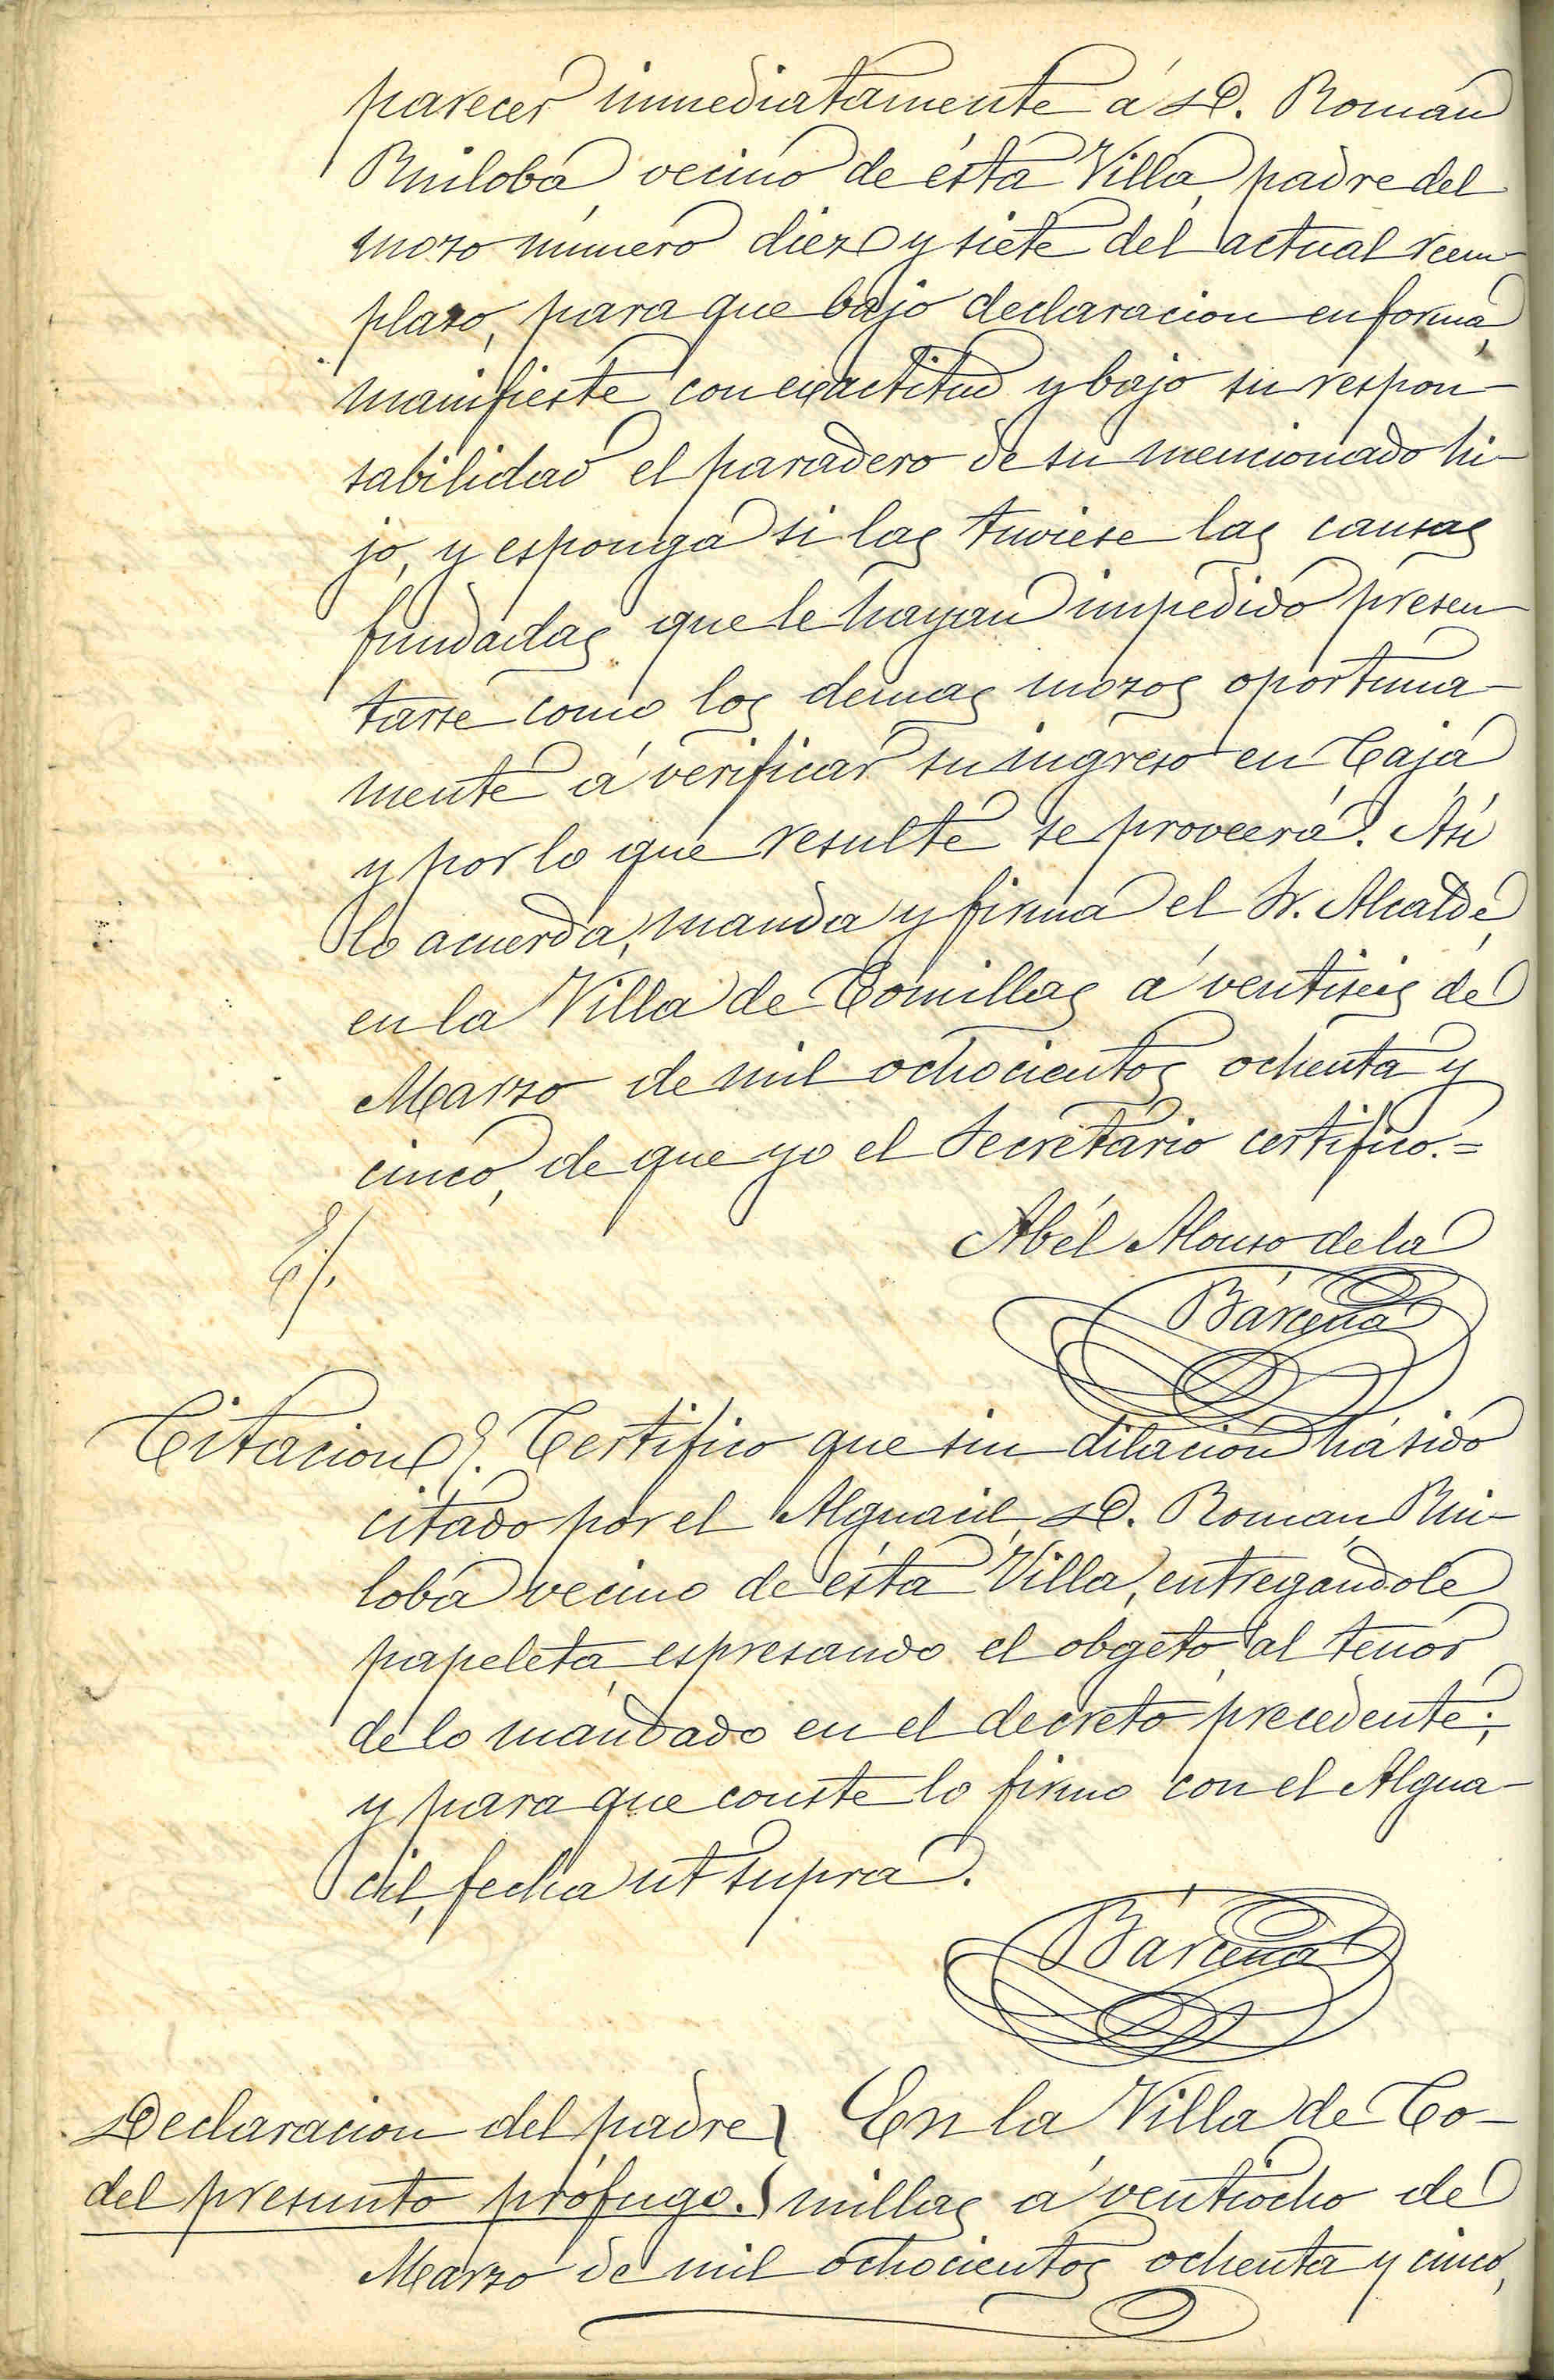 parecer inmediatamente á D. Román
Ruiloba, vecino de ésta Villa, padre del
mozo número diez y siete del actual reem-
plazo, para que bajo declaracion en forma,
manifieste con exactitud y bajo su respon-
sabilidad el paradero de su mencionado hi-
jo, y esponga si las tuviese las causas
fundadas que le hayan impedido presen-
tarse como los demas mozos oportuna-
mente á verificar su ingreso en Caja
y por lo que resulte se proveerá. Así
lo acuerda, manda y firma el Sr. Alcalde,
en la Villa de Comillas á ventiseis de
Marzo de mil ochocientos ochenta y
cinco, de que yo el Secretario certifico.=
Abél Alonso de la
Bárcena
Citacion. Certifico que sin dilación há sido
citado por el Alguacil, D. Roman Rui-
loba vecino de ésta Villa, entregándole
papeleta, espresando el obgeto, al tenor
de lo mandado en el decreto precedente;
y para que conste lo firmo con el Algua-
cil, fecha ut supra.
Bárcena
Declaracion del padre
del presunto prófugo.
En la Villa de Co-
millas á ventiocho de
Marzo de mil ochocientos ochenta y cinco,